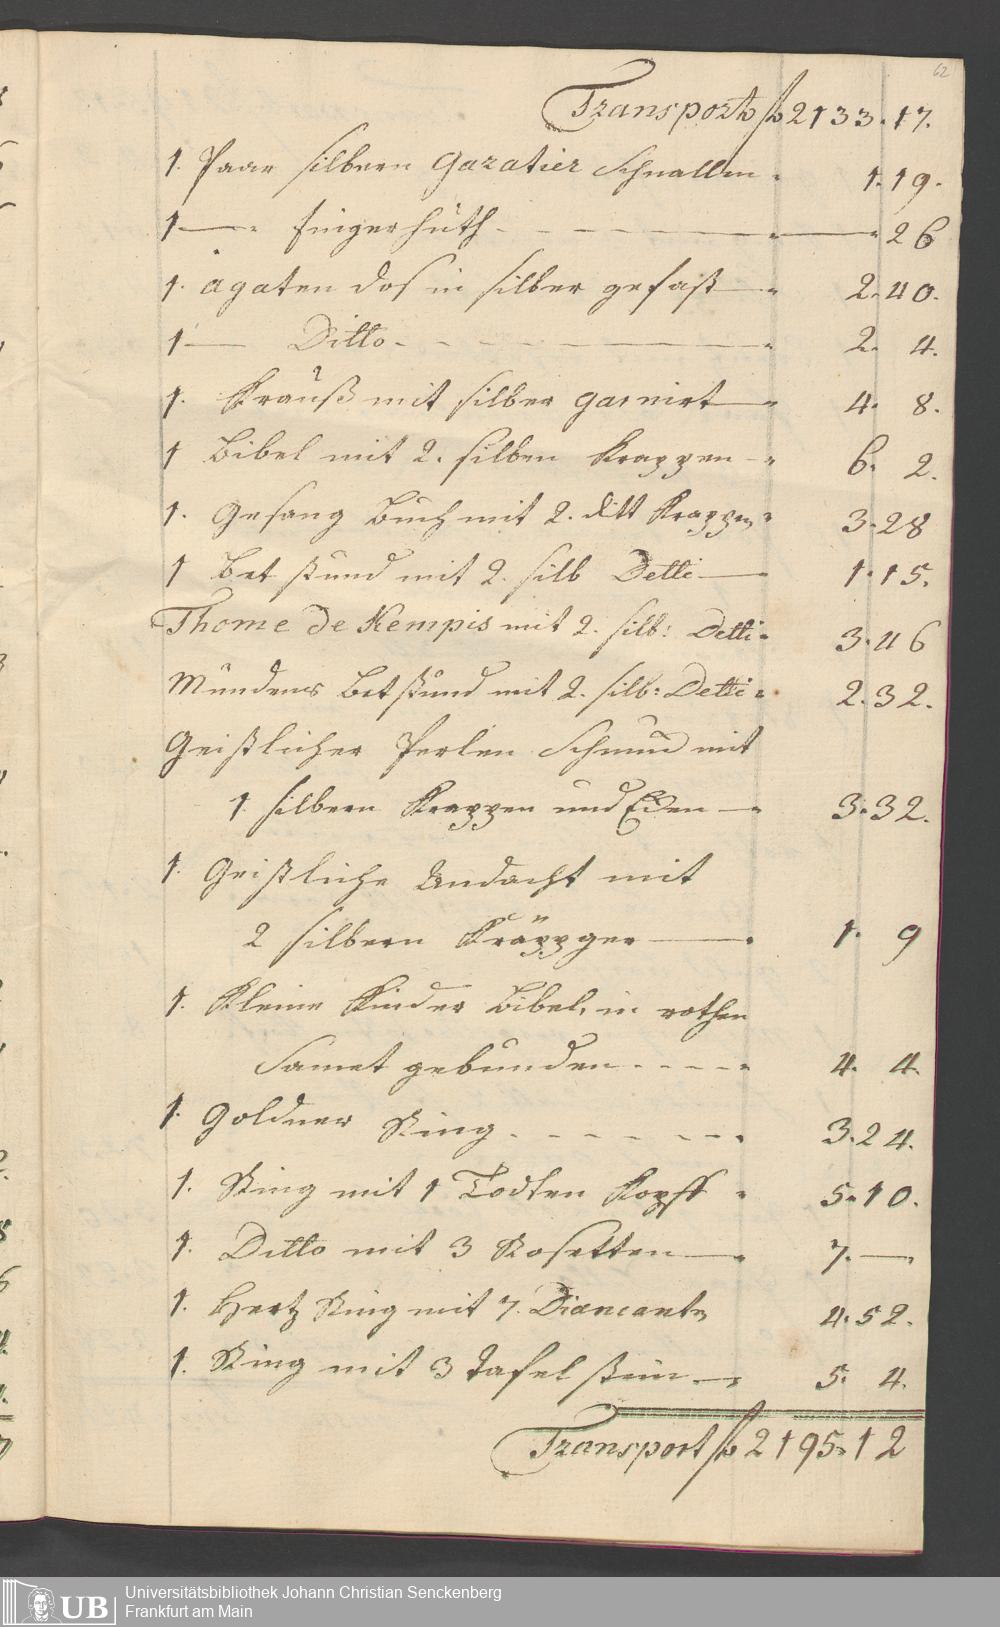 62
Transport f 2133.17.
1. Paar silbern Gazatier Schnallen 1.19.
1 — fingerhüth 26
1. agaten dos in silber gefast 2.40.
1 — Ditto 2. 4.
1. Krauß mit silber garnirt 4. 8.
1 Bibel mit 2. silbern Krappen 6. 2.
1. Gesang Buch mit 2. ditt Krappen 3.28
1 Bet stund mit 2. silb Detti 1.15.
Thome de Kempis mit 2. silb: Detti 3.46
Mündens Betstund mit 2. silb: Detti 2.32.
Geistlicher Perlen Schmuck mit
1 silbern Krappen und Eden 3.32.
1. Geistliche Andacht mit
2 silbern Kräppger 1. 9
1. Kleine Kinder Bibel, in rothen
Samet gebunden 4. 4.
1. Goldner Ring 3.24.
1. Ring mit 1 Todten Kopff 5.10.
1. Ditto mit 3 Rosetten 7. —
1. Hertz Ring mit 7. Diamanten 4.52.
1. Ring mit 3 Tafel stein 5. 4.
Transport f 2195.12
UB Universitätsbibliothek Johann Christian Senckenberg
Frankfurt am Main